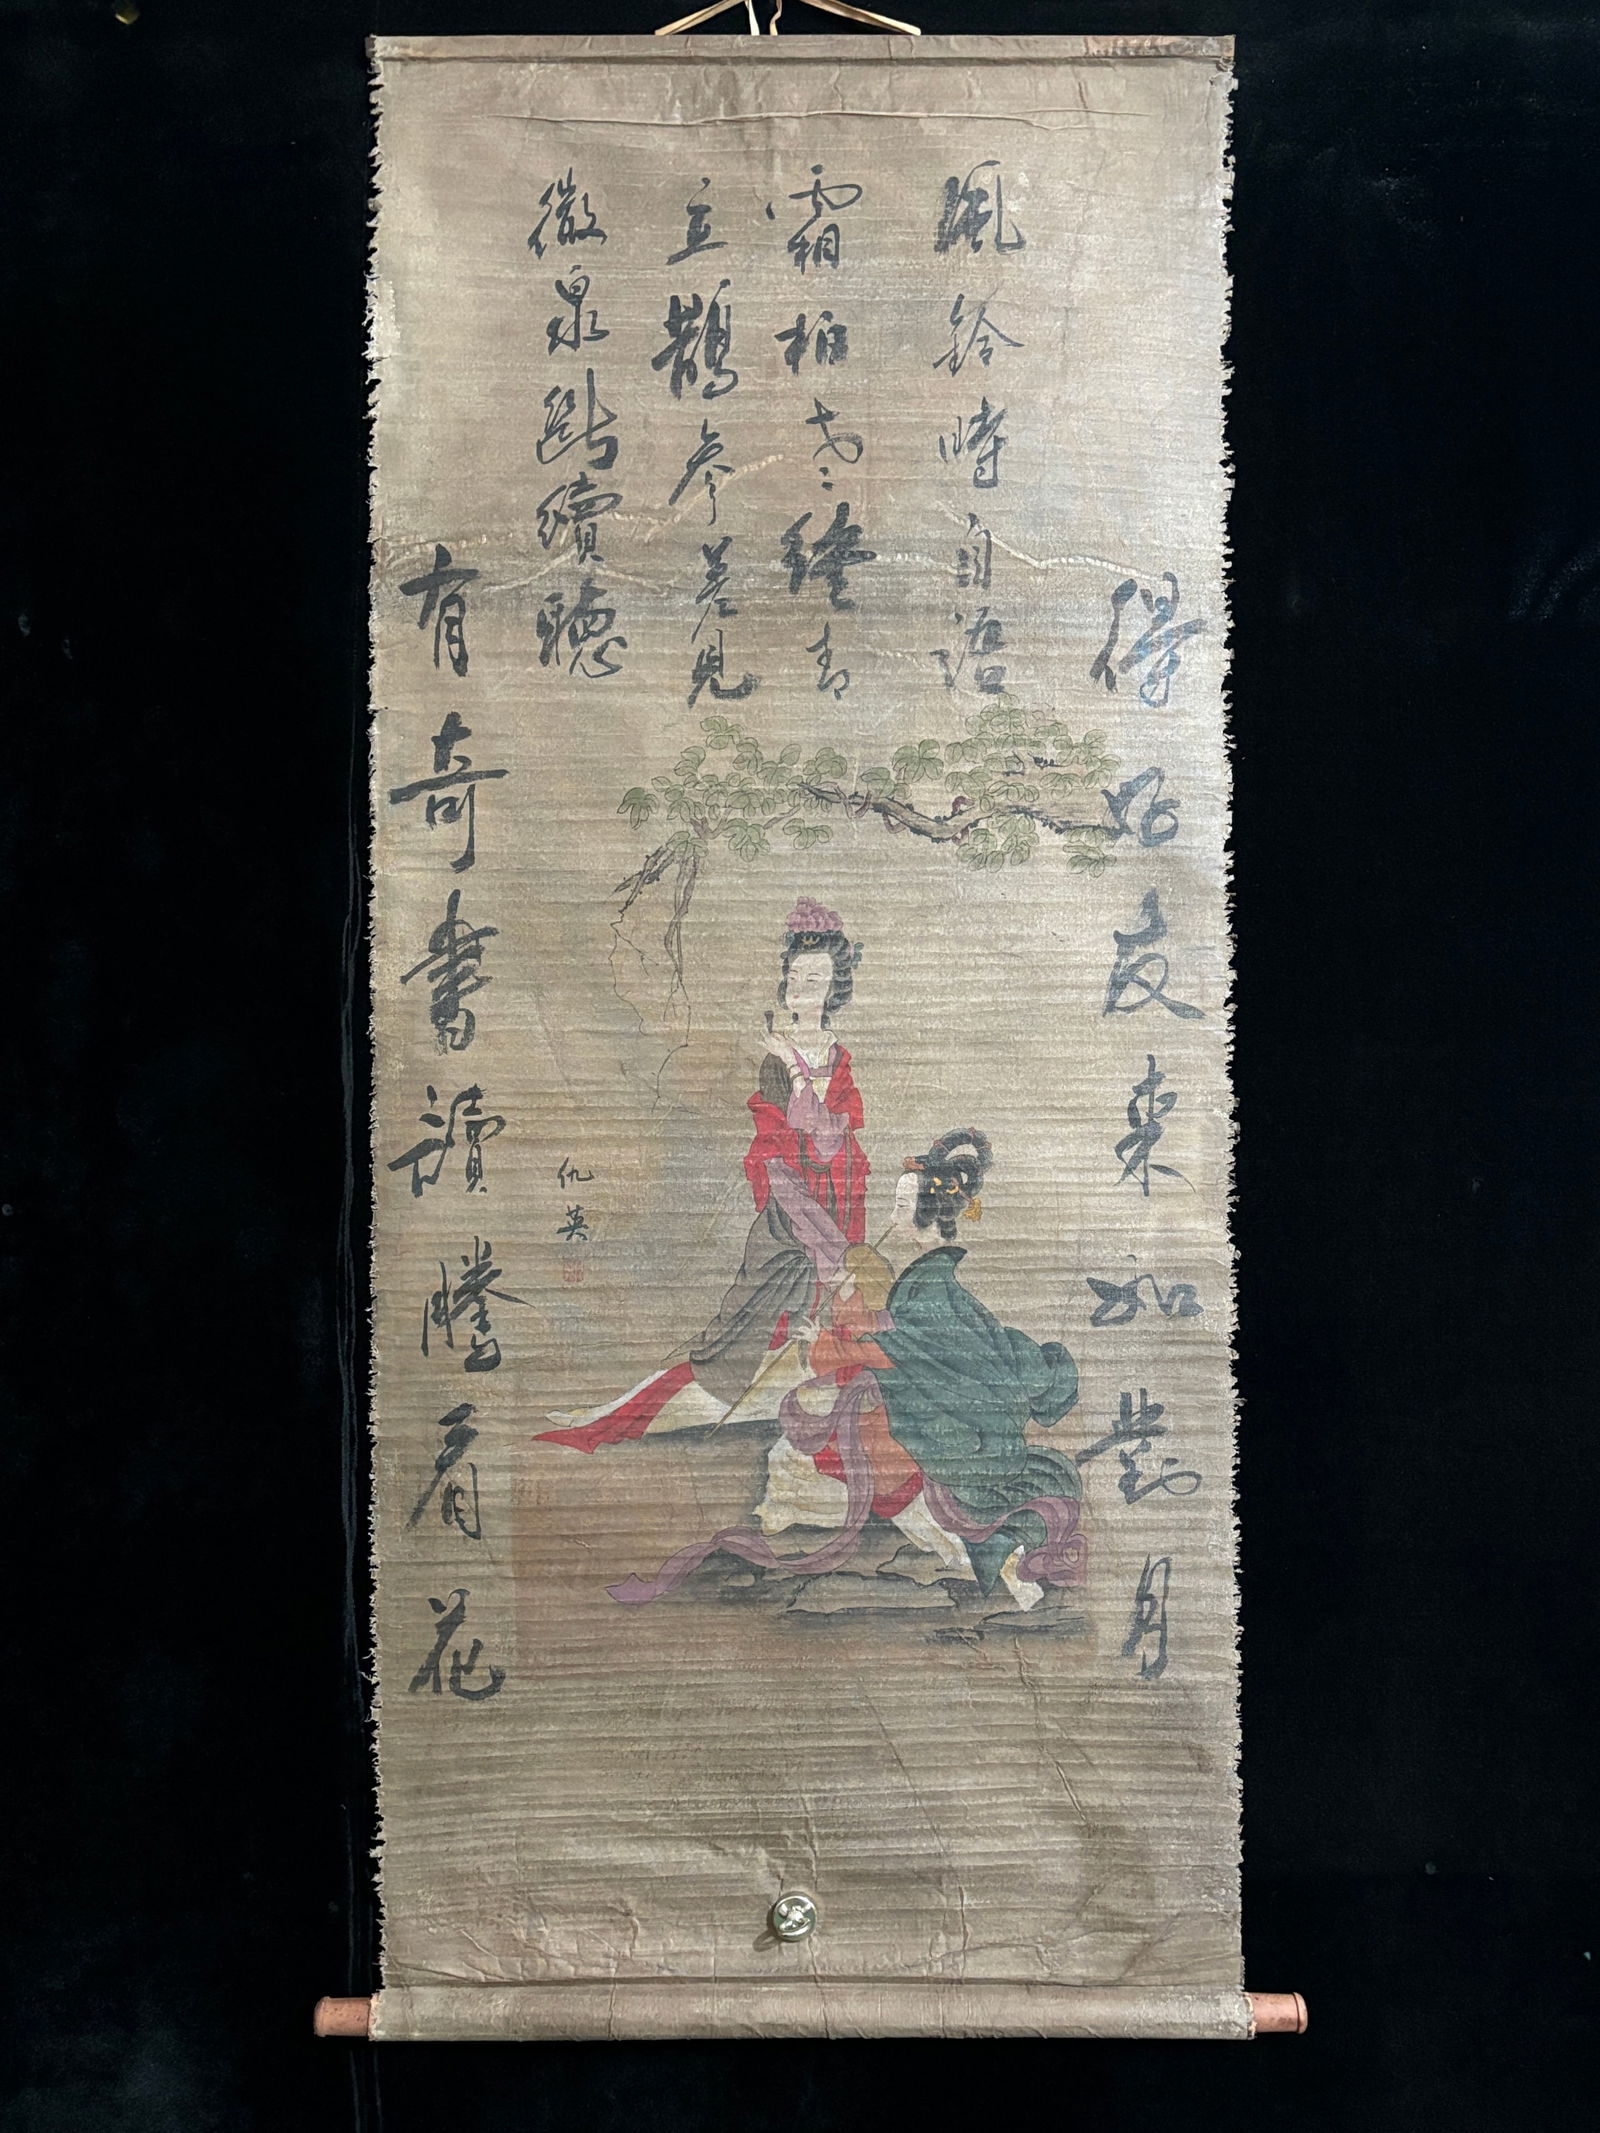 得好友来如對月
風鈴時自語
霜柏老青
立鵲參差見
微泉斷續聽
有奇書讀勝看花
仇英